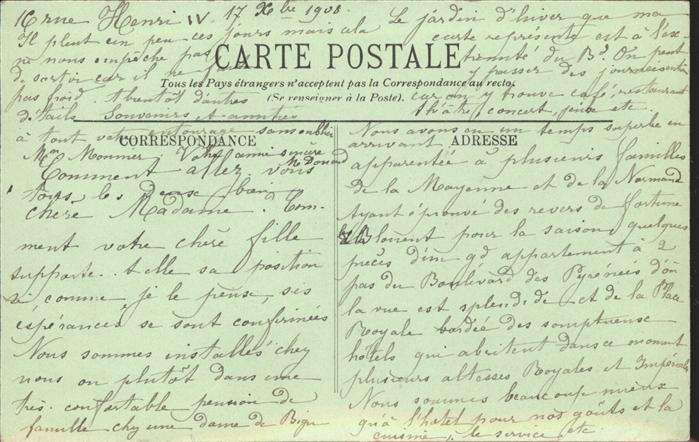 16 rue Henri IV 17 Xbre 1908
Il pleut un peu ces jours mais cela
ne nous empêche pas
de sortir car il ne fait
pas froid. A bientôt d'autres
détails Souvenirs et amitiés
à tout votre entourage sans oublier
Mme Monnier Votre amie sincère
Le jardin d'hiver que ma
carte représente est à l'ex-
trémité du Bd. On peut
y passer des journées entières
car on y trouve café, restaurant
théâtre, concert, jeux etc.
CARTE POSTALE
Tous les Pays étrangers n'acceptent pas la Correspondance au recto.
(Se renseigner à la Poste).
CORRESPONDANCE
ADRESSE
Comment allez vous
tous les deux bien
chère Madame. Com-
ment votre chère fille
supporte-t-elle sa position
si comme je le pense, ses
espérances se sont confirmées
Nous sommes installés chez
nous ou plutôt dans une
très confortable pension de
famille chez une dame de
Nous avons eu un temps superbe en
arrivant
apparentée à plusieurs familles
de la Mayenne et de la Normandie
Ayant éprouvé des revers de fortune
louent pour la saison quelques
pièces d'un gd appartement à 2
pas du Boulevard des Pyrénées d'où
la vue est splendide et de la Place
Royale bordée des somptueux
hôtels qui abritent dans ce moment
plusieurs altesses Royales et Impériales
Nous sommes beaucoup mieux
qu'à l'hôtel pour nos goûts et la
cuisine, le service, etc